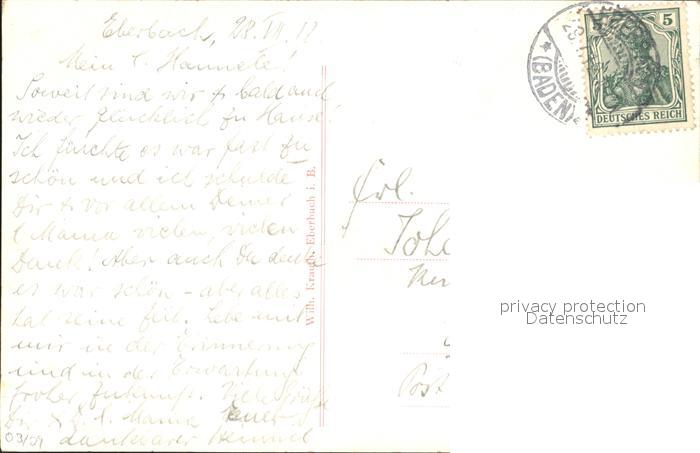 Eberbach, 28. VII. 12
Mein l. Hannele!
Soweit sind wir & bald auch
wieder glücklich zu Hause!
Ich fürchte es war fast zu
schön und ich schulde
Dir & vor allem Deiner
l. Mama vielen, vielen
Dank! Aber auch Du denke
es war schön – aber alles
hat seine Zeit. Lebe mit
mir in der Erinnerung
und in der Erwartung
froher Zukunft. Viele Grüße
Dir & d. l. Mama Euer
dankbarer
03/09
Wilh. Krauth, Eberbach i. B.
Frl.
Joh
Post
(BADEN)
5 5
DEUTSCHES REICH
privacy protection
Datenschutz